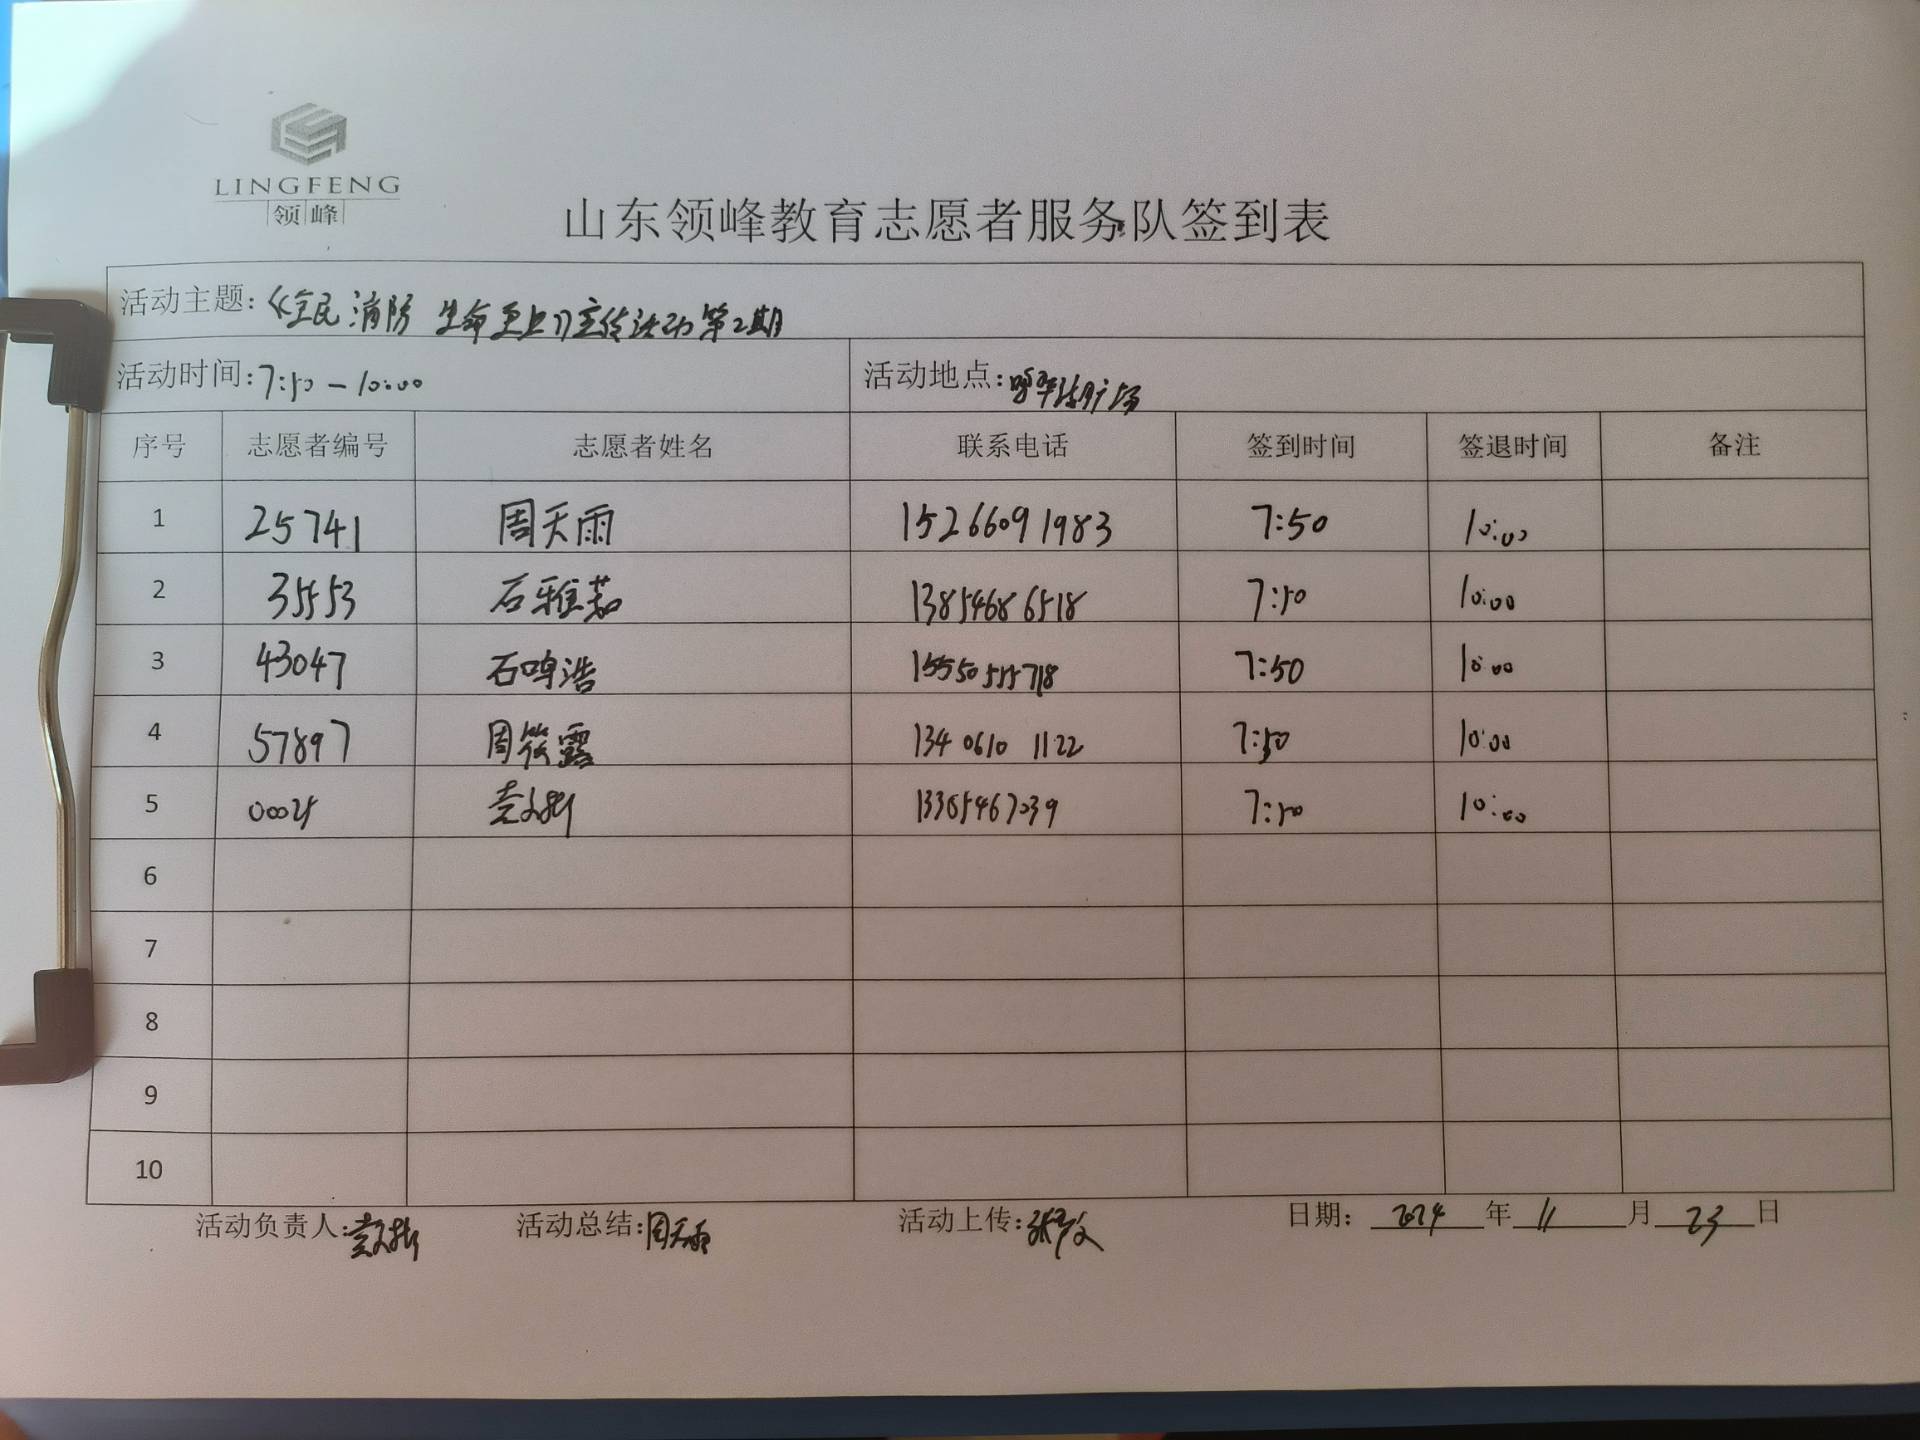 LINGFENG
领峰
山东领峰教育志愿者服务队签到表
活动主题:《全民消防 生命至上》宣传活动第2期
活动时间:7:50-10:00 活动地点:广场
序号 志愿者编号 志愿者姓名 联系电话 签到时间 签退时间 备注
1 25741 周天雨 15266091983 7:50 10:00
2 35553 石雅茹 13854686518 7:50 10:00
3 43047 石鸣浩 15550555718 7:50 10:00
4 57897 周筱露 134 0610 1122 7:50 10:00
5 0002 13365467039 7:50 10:00
6
7
8
9
10
活动负责人: 活动总结:周天雨 活动上传: 日期: 2024 年 11 月 23 日